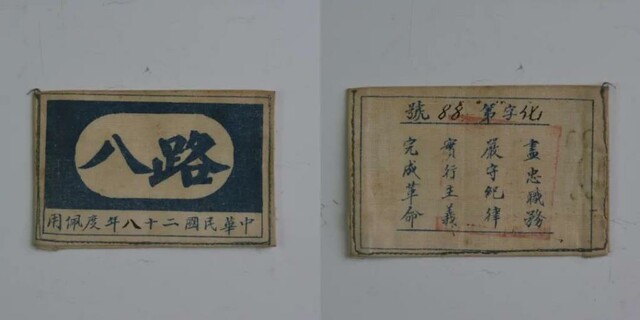 八路
中華民國二十八年度佩用
化字第88號
盡忠職務
嚴守紀律
實行主義
完成革命